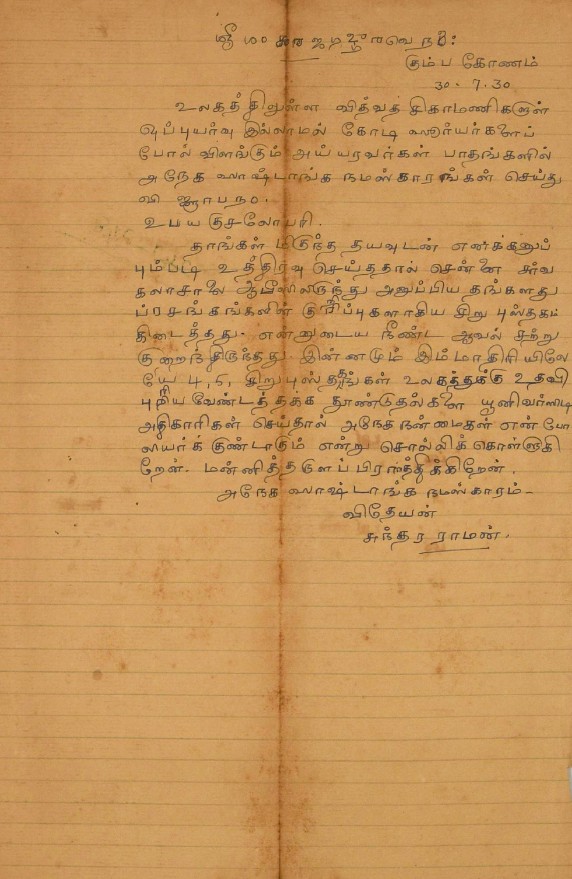 கும்பகோணம்
30.7.30
உலகத்திலுள்ள வித்வத் சிகாமணிகளுள்
ஒப்புயர்வு இல்லாமல் கோடி ஸூர்யர்களைப்
போல் விளங்கும் அய்யரவர்கள் பாதங்களில்
அநேக ஸாஷ்டாங்க நமஸ்காரங்கள் செய்து
விஜ்ஞாபநம்.
உபயகுசலோபரி.
தாங்கள் மிகுந்த தயவுடன் எனக்கனுப்
பும்படி உத்திரவு செய்ததால் சென்னை சர்வ
கலாசாலை ஆபீஸிலிருந்து அனுப்பிய தங்களது
ப்ரசங்கங்களின் குறிப்புகளாகிய சிறு புஸ்தகம்
கிடைத்தது. என்னுடைய நீண்ட ஆவல் சற்று
குறைந்திருந்தது. இன்னமும் இம்மாதிரியிலே
யே 4, 5, சிறுபுஸ்தகங்கள் உலகத்துக்கு உதவி
புரியவேண்டத்தக்க தூண்டுதல்களை யூனிவர்ஸிடி
அதிகாரிகள் செய்தால் அநேக நன்மைகள் என் போ
லியர்க் குண்டாகும் என்று சொல்லிக்கொள்ளுகி
றேன். மன்னித்தருளப் பிரார்த்திக்கிறேன்.
அநேக ஸாஷ்டாங்க நமஸ்காரம் -
விதேயன்
சுந்தர ராமன்.